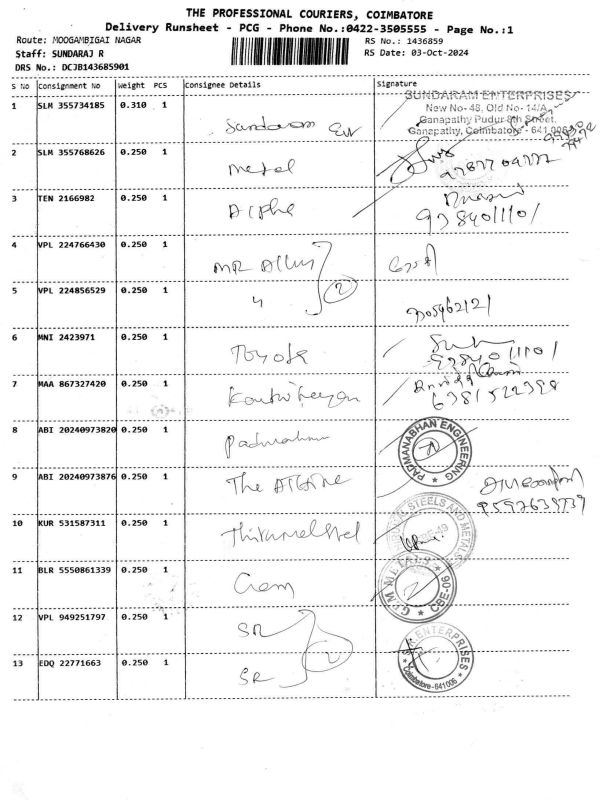 THE PROFESSIONAL COURIERS, COIMBATORE
Delivery Runsheet - PCG - Phone No.:0422-3505555 - Page No.:1
Route: MOOGAMBIGAI NAGAR RS No.: 1436859
Staff: SUNDARAJ R RS Date: 03-Oct-2024
DRS No.: DCJB143685901
S No Consignment No Weight PCS Consignee Details Signature
SUNDARAM ENTERPRISES
1 SLM 355734185 0.310 1 New No- 48, Old No- 14/A,
Ganapathy Pudur 8th Street,
Sundaram Ent Ganapathy, Coimbatore - 641 006
2 SLM 355768626 0.250 1
Metal
3 TEN 2166982 0.250 1
Alpha 9784011101
4 VPL 224766430 0.250 1
MR Alloy
5 VPL 224856529 0.250 1
" 2
6 MNI 2423971 0.250 1
Toyota
7 MAA 867327420 0.250 1
Karthikeyan 6381522398
8 ABI 20240973820 0.250 1
Padmanabhan PADMANABHAN ENGINEERING
9 ABI 20240973876 0.250 1
The
10 KUR 531587311 0.250 1
Thirumal Steel STEELS AND METALS
11 BLR 5550861339 0.250 1
Gem GEM METALS CBE-06
12 VPL 949251797 0.250 1
SR
2 ENTERPRISES
13 EDQ 22771663 0.250 1
SR Coimbatore-641006